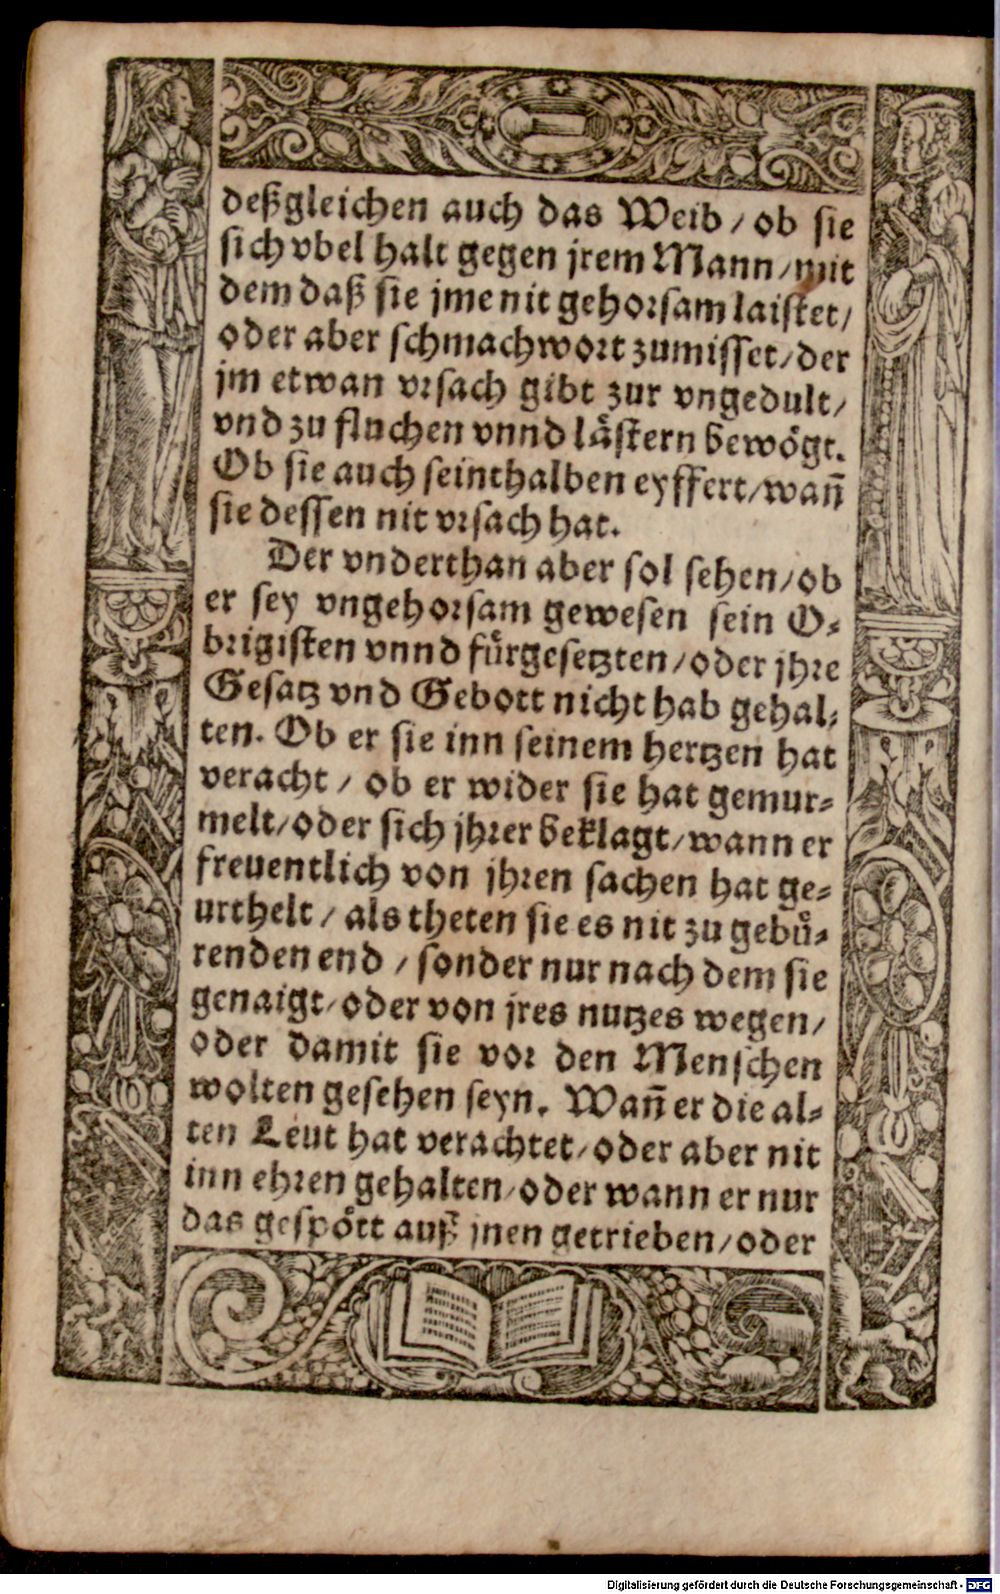 deßgleichen auch das Weib / ob sie
sich vbel halt gegen jrem Mann / mit
dem daß sie jme nit gehorsam laistet /
oder aber schmachwort zumisset / der
jm etwan vrsach gibt zur vngedult /
vnd zu fluchen vnnd låstern bewögt.
Ob sie auch seinthalben eyffert / wañ
sie dessen nit vrsach hat.
Der vnderthan aber sol sehen / ob
er sey vngehorsam gewesen sein O-
brigisten vnnd fürgesetzten / oder jhre
Gesatz vnd Gebott nicht hab gehal-
ten. Ob er sie inn seinem hertzen hat
veracht / ob er wider sie hat gemur-
melt / oder sich jhrer beklagt / wann er
freuentlich von jhren sachen hat ge-
urthelt / als theten sie es nit zu gebü-
renden end / sonder nur nach dem sie
genaigt / oder von jres nutzes wegen /
oder damit sie vor den Menschen
wolten gesehen seyn. Wañ er die al-
ten Leut hat verachtet / oder aber nit
inn ehren gehalten / oder wann er nur
das gespött auß jnen getrieben / oder
Digitalisierung gefördert durch die Deutsche Forschungsgemeinschaft - DFG